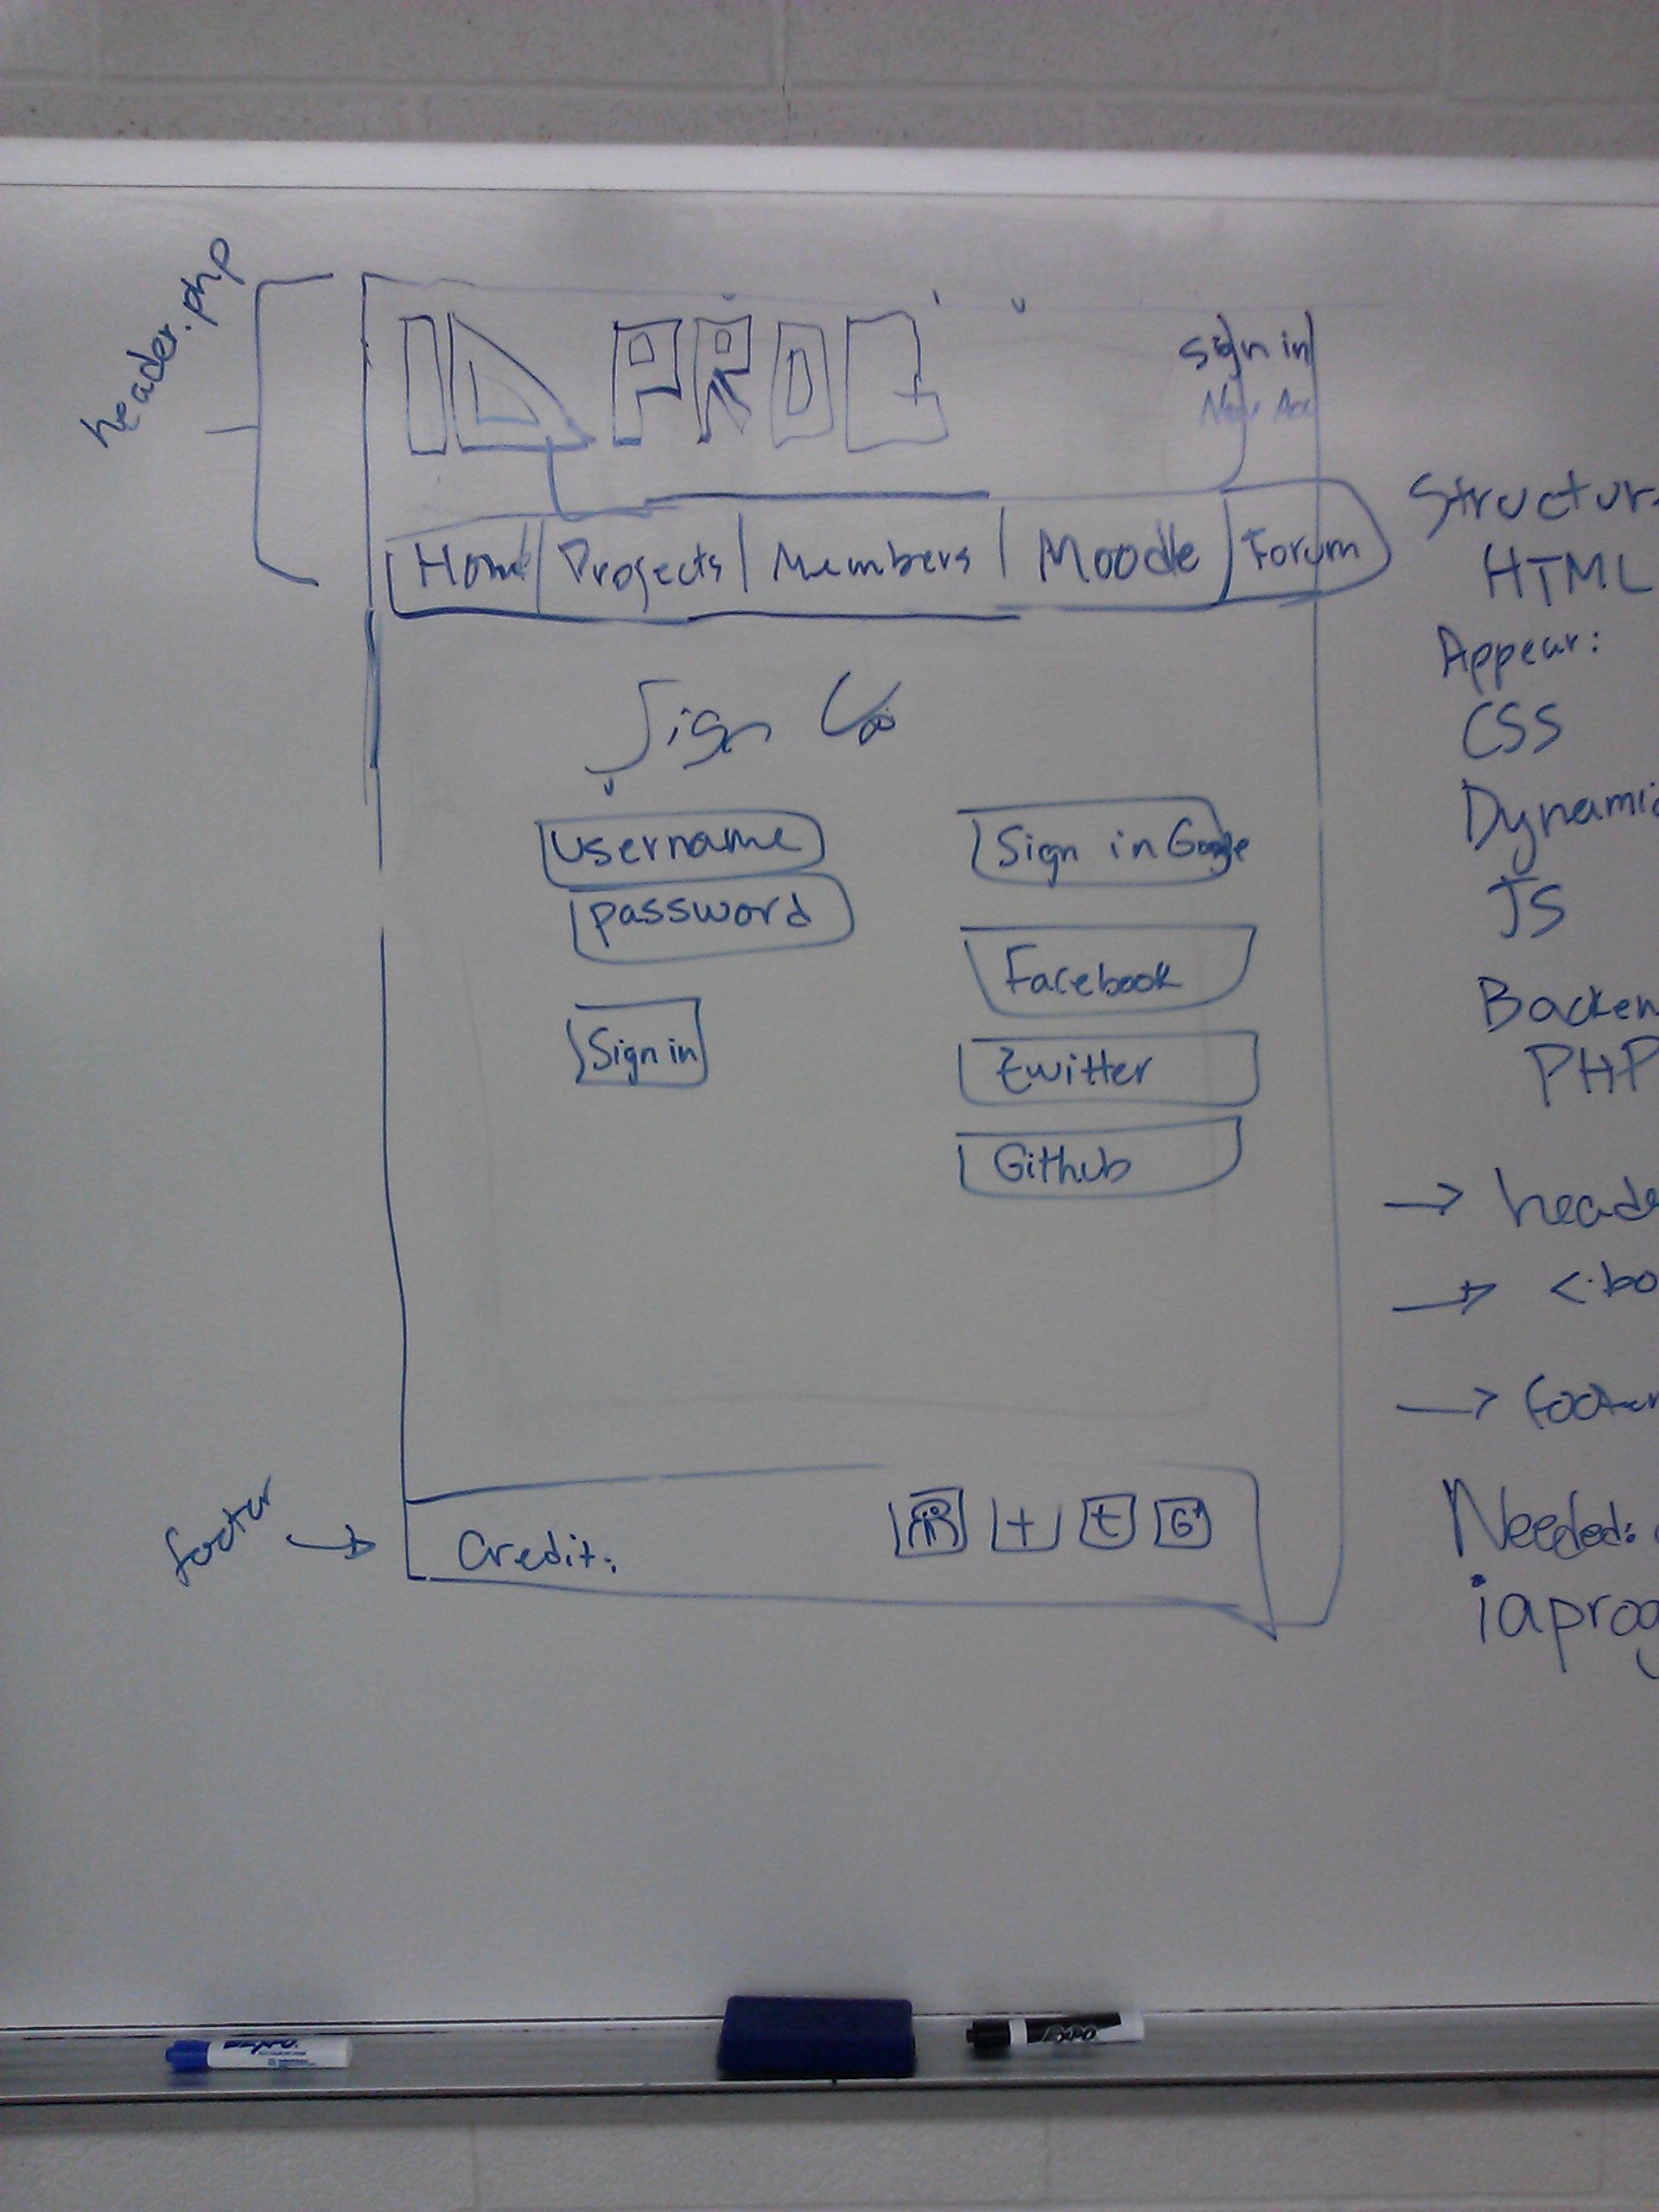 header.php
PROG
sign in
New Acc
Home Projects Members Moodle Forum
Sign
username
password
Sign in
Sign in Google
Facebook
Twitter
Github
footer
Credit:
t G+
Structur
HTML
Appear:
CSS
Dynami
JS
Backen
PHP
→ heade
→ <bo
→ footer
Needed:
iaprog
EXPO
EXPO